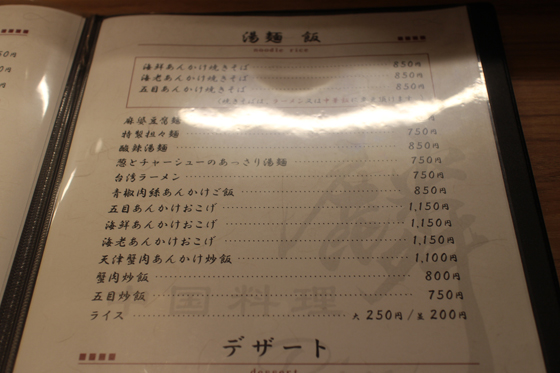 湯麺 飯
noodle rice
海鮮あんかけ焼きそば 850円
海老あんかけ焼きそば 850円
五目あんかけ焼きそば 850円
麻婆豆腐麺
特製担々麺 750円
酸辣湯麺 850円
葱とチャーシューのあっさり湯麺 750円
台湾ラーメン 750円
青椒肉絲あんかけご飯 850円
五目あんかけおこげ 1,150円
海鮮あんかけおこげ 1,150円
海老あんかけおこげ 1,150円
天津蟹肉あんかけ炒飯 1,100円
蟹肉炒飯 800円
五目炒飯 750円
ライス 大 250円 / 並 200円
デザート
dessert